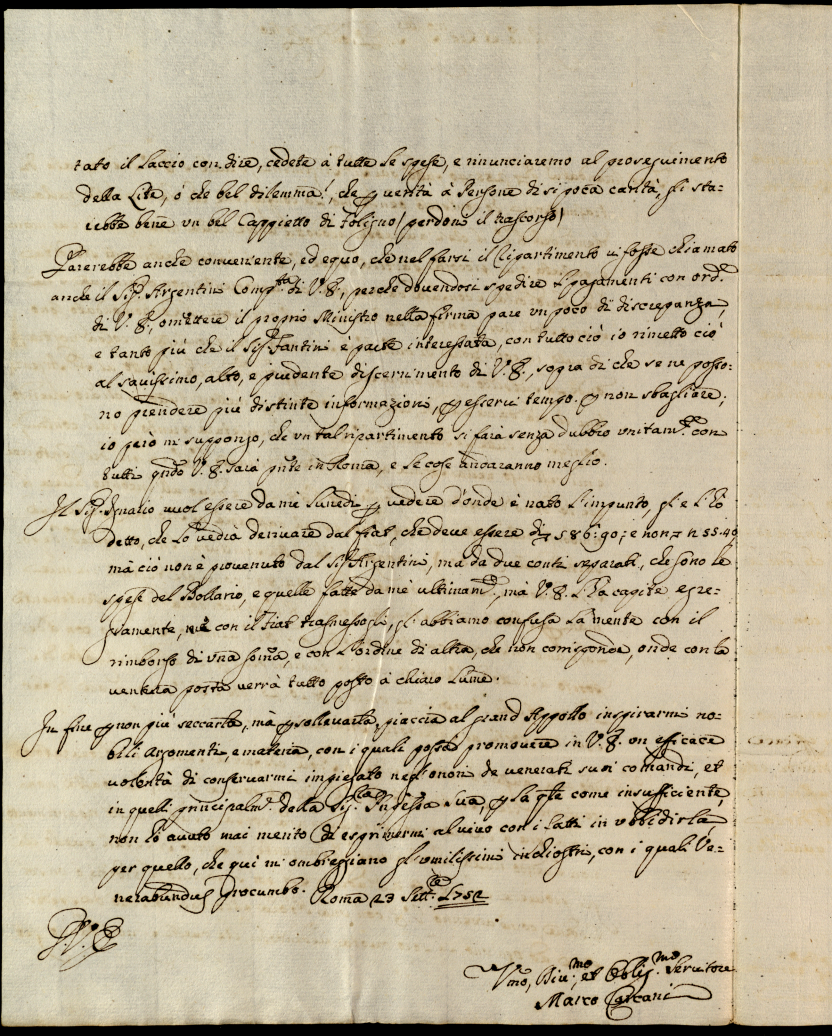 tato il Laccio con dire, cedete à tutte le spese, e rinunciaremo al proseguimento
della Lite, ó che bel dilemma!, che p verità à Persone di si poca carità, gli sta:
rebbe bene vn bel Cappietto di Foligno (perdoni il trascorso)
Parerebbe anche conveniente, ed equo, che nel farsi il Ripartimento vi fosse chiamato
anche il Sig.r Argentini Comp.sta di V.S., perche dovendosi spedire i pagamenti con ord.e
di V.S., omittere il proprio Ministro nella firma pare vn poco di discrepanza,
e tanto più che il Sig.r Fantini è parte interessata, con tutto ciò io rimetto ciò
al savissimo, alto, e prudente discernimento di V.S., sopra di che se ne posso:
no prendere più distinte informazioni, p esservi tempo, p non sbagliare;
io però mi suppongo, che vn tal ripartimento si farà senza dubbio vnitam.te con
tutti qndo V.S. sarà pnte in Roma, e le cose andaranno meglio.
Il Sig.r Ignazio vuol essere da me Lunedi p vedere d'onde è nato L'impunto, gl'e L'hò
detto, che lo vedrà derivare dal fiat, che deve essere di 586:90; e non 55.40
mà ciò non è provenuto dal Sig.r Argentini, ma da due conti separati, che sono le
spese del Bollario, e quelle fatte da me ultimam.te, mà V.S. L'hà capite egre:
giamente, con il Fiat trasmessogli, gl'abbiamo confusa La mente con il
rimborso di vna somma, e con L'ordine di altra, che non corrisponde, onde con la
ventura posta verrà tutto posto à chiaro Lume.
In fine p non più seccarla, mà p sollevarla, piaccia al grand'Appollo inspirarmi no:
bili Argomenti, e materia, con i quali possa promovere in V.S. vn efficace
volontà di conservarmi impiegato negl'onori de venerati suoi comandi, et
in quelli principalm.te della Sig.ra Pn̄ssa Sua, p la qle come insufficiente,
non hò avuto mai merito di esprimermi al vivo con i fatti in vbbidirla,
per quello, che qui m'ombreggiano gl'vmilissimi inchiostri, con i quali Ve:
nerabundus procumbo. Roma 23 Sett.e 1752
D.V.S.
Vmo, Div.mo, et Oblig.mo Servitore
Marco Carcani